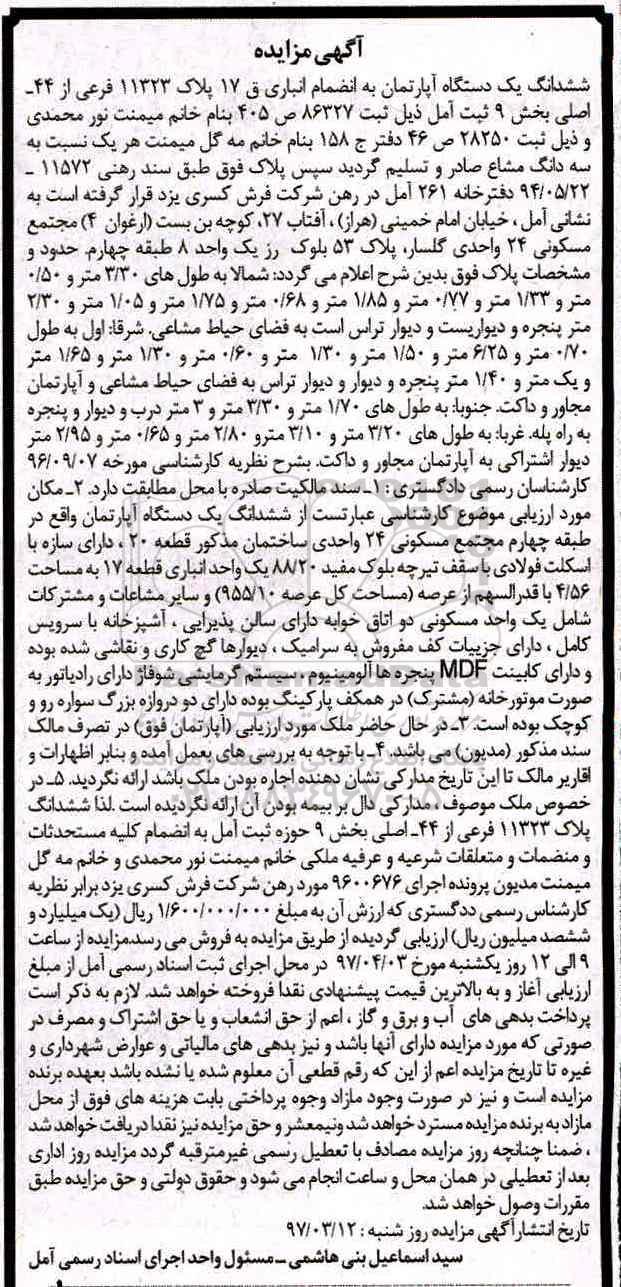 آگهی مزایده
ششدانگ یک دستگاه آپارتمان به انضمام انباری ق ۱۷ پلاک ۱۱۳۲۳ فرعی از ۴۴ـ
اصلی بخش ۹ ثبت آمل ذیل ثبت ۸۶۳۲۷ ص ۴۰۵ بنام خانم میمنت نور محمدی
و ذیل ثبت ۲۸۲۵۰ ص ۴۶ دفتر ج ۱۵۸ بنام خانم مه گل میمنت هر یک نسبت به
سه دانگ مشاع صادر و تسلیم گردید سپس پلاک فوق طبق سند رهنی ۱۱۵۷۲ ـ
۹۴/۰۵/۲۲ دفترخانه ۲۶۱ آمل در رهن شرکت فرش کسری یزد قرار گرفته است به
نشانی آمل ، خیابان امام خمینی (هراز) ، آفتاب ۲۷، کوچه بن بست (ارغوان ۴) مجتمع
مسکونی ۲۴ واحدی گلسار، پلاک ۵۳ بلوک رز یک واحد ۸ طبقه چهارم. حدود و
مشخصات پلاک فوق بدین شرح اعلام می گردد: شمالا به طول های ۳/۳۰ متر و ۰/۵۰
متر و ۱/۳۳ متر و ۰/۷۷ متر و ۱/۸۵ متر و ۰/۶۸ متر و ۱/۷۵ متر و ۱/۰۵ متر و ۲/۳۰
متر پنجره و دیواریست و دیوار تراس است به فضای حیاط مشاعی. شرقا: اول به طول
۰/۷۰ متر و ۶/۲۵ متر و ۱/۵۰ متر و ۱/۳۰ متر و ۰/۶۰ متر و ۱/۳۰ متر و ۱/۶۵ متر
و یک متر و ۱/۴۰ متر پنجره و دیوار و دیوار تراس به فضای حیاط مشاعی و آپارتمان
مجاور و داکت. جنوبا: به طول های ۱/۷۰ متر و ۳/۳۰ متر و ۳ متر درب و دیوار و پنجره
به راه پله. غربا: به طول های ۳/۲۰ متر و ۳/۱۰ مترو ۲/۸۰ متر و ۰/۶۵ متر و ۲/۹۵ متر
دیوار اشتراکی به آپارتمان مجاور و داکت. بشرح نظریه کارشناسی مورخه ۹۶/۰۹/۰۷
کارشناسان رسمی دادگستری : ۱ـ سند مالکیت صادره با محل مطابقت دارد. ۲ـ مکان
مورد ارزیابی موضوع کارشناسی عبارتست از ششدانگ یک دستگاه آپارتمان واقع در
طبقه چهارم مجتمع مسکونی ۲۴ واحدی ساختمان مذکور قطعه ۲۰ ، دارای سازه با
اسکلت فولادی با سقف تیرچه بلوک مفید ۸۸/۲۰ یک واحد انباری قطعه ۱۷ به مساحت
۴/۵۶ با قدرالسهم از عرصه (مساحت کل عرصه ۹۵۵/۱۰) و سایر مشاعات و مشترکات
شامل یک واحد مسکونی دو اتاق خوابه دارای سالن پذیرایی ، آشپزخانه با سرویس
کامل ، دارای جزییات کف مفروش به سرامیک ، دیوارها گچ کاری و نقاشی شده بوده
و دارای کابینت MDF پنجره ها آلومینیوم ، سیستم گرمایشی شوفاژ دارای رادیاتور به
صورت موتورخانه (مشترک) در همکف پارکینگ بوده دارای دو دروازه بزرگ سواره رو و
کوچک بوده است. ۳ـ در حال حاضر ملک مورد ارزیابی (آپارتمان فوق) در تصرف مالک
سند مذکور (مدیون) می باشد. ۴ـ با توجه به بررسی های بعمل آمده و بنابر اظهارات و
اقاریر مالک تا این تاریخ مدارکی نشان دهنده اجاره بودن ملک باشد ارائه نگردید. ۵ـ در
خصوص ملک موصوف ، مدارکی دال بر بیمه بودن آن ارائه نگردیده است .لذا ششدانگ
پلاک ۱۱۳۲۳ فرعی از ۴۴ـ اصلی بخش ۹ حوزه ثبت آمل به انضمام کلیه مستحدثات
و منضمات و متعلقات شرعیه و عرفیه ملکی خانم میمنت نور محمدی و خانم مه گل
میمنت مدیون پرونده اجرای ۹۶۰۰۶۷۶ مورد رهن شرکت فرش کسری یزد برابر نظریه
کارشناس رسمی ددگستری که ارزش آن به مبلغ ۱/۶۰۰/۰۰۰/۰۰۰ ریال (یک میلیارد و
ششصد میلیون ریال) ارزیابی گردیده از طریق مزایده به فروش می رسد.مزایده از ساعت
۹ الی ۱۲ روز یکشنبه مورخ ۹۷/۰۴/۰۳ در محل اجرای ثبت اسناد رسمی آمل از مبلغ
ارزیابی آغاز و به بالاترین قیمت پیشنهادی نقدا فروخته خواهد شد. لازم به ذکر است
پرداخت بدهی های آب و برق و گاز ، اعم از حق انشعاب و یا حق اشتراک و مصرف در
صورتی که مورد مزایده دارای آنها باشد و نیز بدهی های مالیاتی و عوارض شهرداری و
غیره تا تاریخ مزایده اعم از این که رقم قطعی آن معلوم شده یا نشده باشد بعهده برنده
مزایده است و نیز در صورت وجود مازاد وجوه پرداختی بابت هزینه های فوق از محل
مازاد به برنده مزایده مسترد خواهد شد ونیمعشر و حق مزایده نیز نقدا دریافت خواهد شد
، ضمنا چنانچه روز مزایده مصادف با تعطیل رسمی غیرمترقبه گردد مزایده روز اداری
بعد از تعطیلی در همان محل و ساعت انجام می شود و حقوق دولتی و حق مزایده طبق
مقررات وصول خواهد شد.
تاریخ انتشارآگهی مزایده روز شنبه : ۹۷/۰۳/۱۲
سید اسماعیل بنی هاشمی ـ مسئول واحد اجرای اسناد رسمی آمل